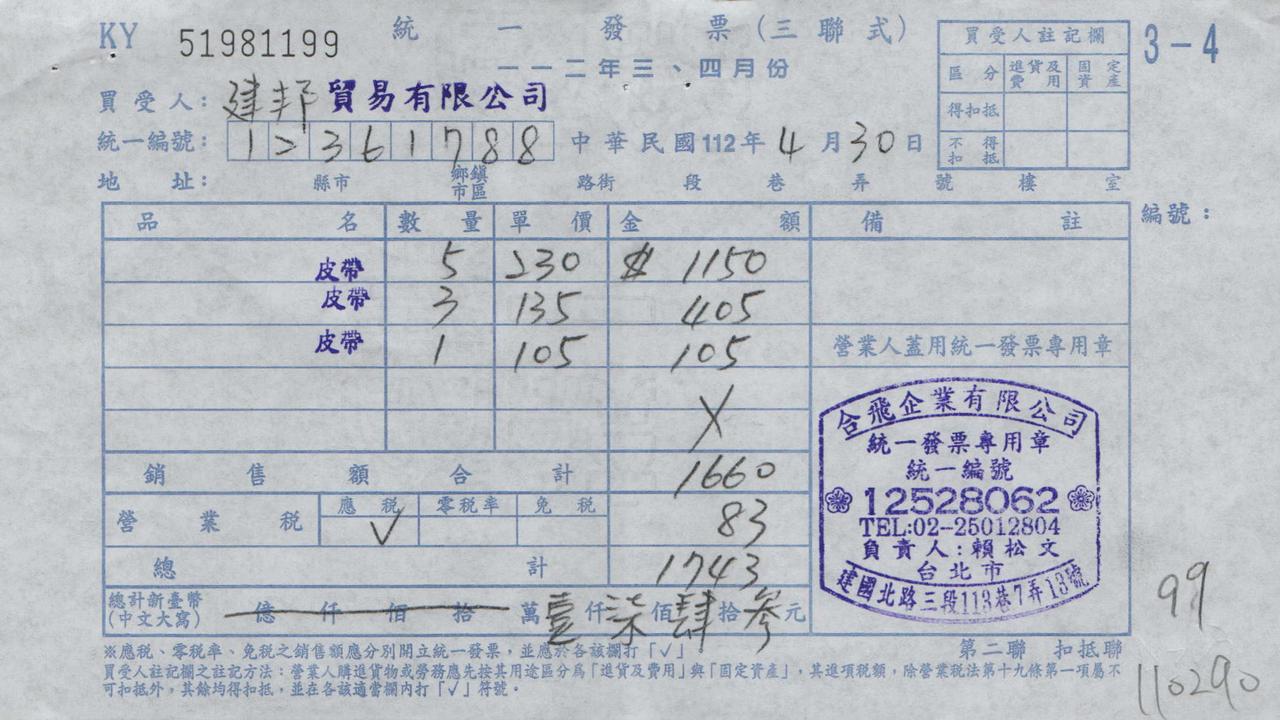 KY 51981199 統一發票(三聯式)
一一二年三、四月份
3-4
買受人註記欄
區分 進貨及費用 固定資產
得扣抵
不得扣抵
買受人: 建邦貿易有限公司
統一編號: 12361788 中華民國112年4月30日
地址: 縣市 鄉鎮市區 路街 段 巷 弄 號 樓 室
編號:
品名 數量 單價 金額 備註
皮帶 5 230 $ 1150
皮帶 3 135 405
皮帶 1 105 105
營業人蓋用統一發票專用章
X
銷售額合計 1660
營業稅 應稅 零稅率 免稅 83
√
總計 1743
總計新臺幣(中文大寫) 億仟佰拾萬壹仟柒佰肆拾參元
合飛企業有限公司
統一發票專用章
統一編號
12528062
TEL:02-25012804
負責人:賴松文
台北市
建國北路三段113巷7弄13號
99
110290
※應稅、零稅率、免稅之銷售額應分別開立統一發票,並應於各該欄打「√」
第二聯 扣抵聯
買受人註記欄之註記方法:營業人購進貨物或勞務應先按其用途區分為「進貨及費用」與「固定資產」,其進項稅額,除營業稅法第十九條第一項屬不
可扣抵外,其餘均得扣抵,並在各該適當欄內打「√」符號。